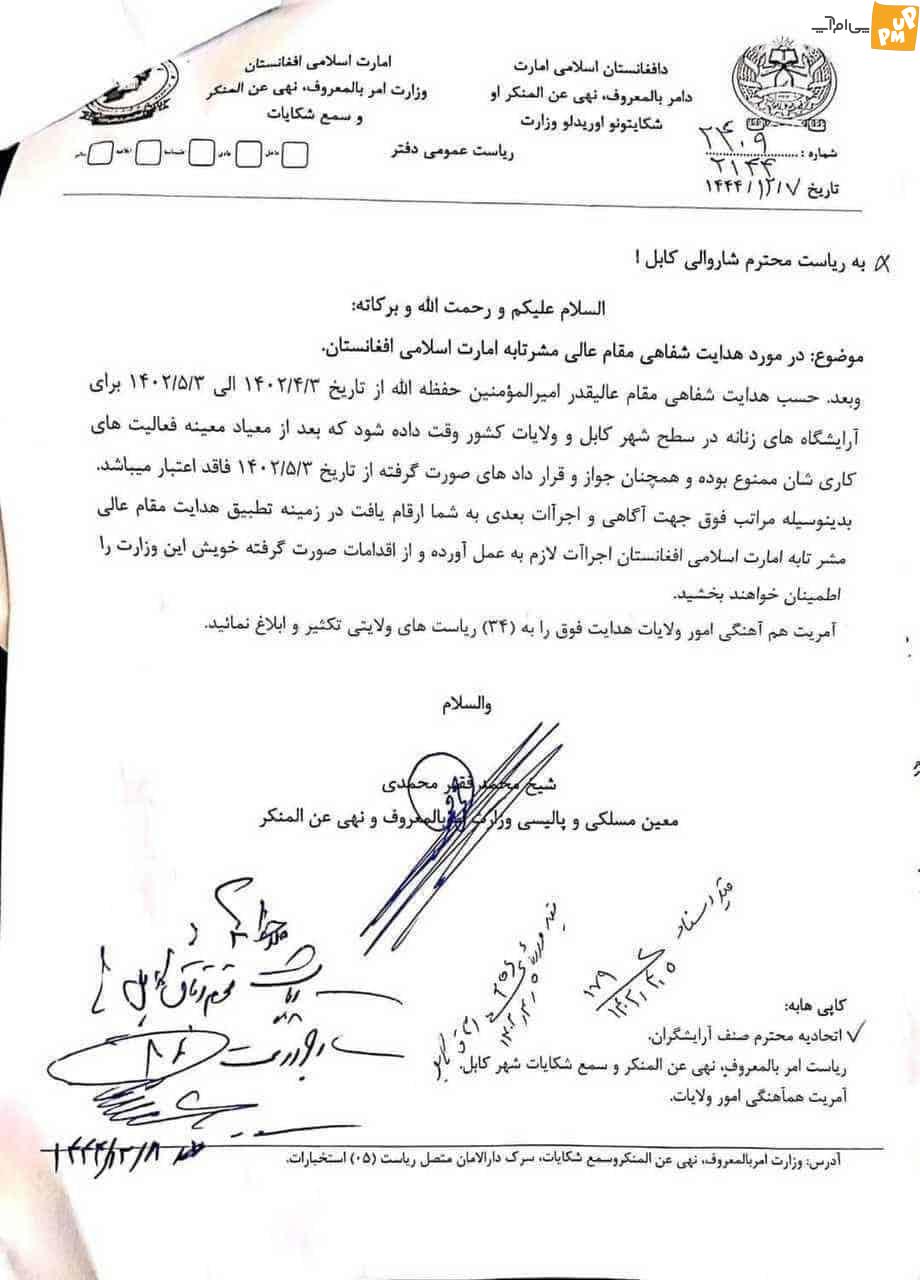 پی‌ام‌آپ
PM UP
دافغانستان اسلامی امارت
دامر بالمعروف، نهی عن المنکر او
شکایتونو اوریدلو وزارت
امارت اسلامی افغانستان
وزارت امر بالمعروف، نهی عن المنکر
و سمع شکایات
ریاست عمومی دفتر
شماره : ۲۴۰۹
۲۱۴۴
تاریخ ۱۴۴۴/۱۲/۷
به ریاست محترم شاروالی کابل !
السلام علیکم و رحمت الله و برکاته:
موضوع: در مورد هدایت شفاهی مقام عالی مشرتابه امارت اسلامی افغانستان.
وبعد. حسب هدایت شفاهی مقام عالیقدر امیرالمؤمنین حفظه الله از تاریخ ۱۴۰۲/۴/۳ الی ۱۴۰۲/۵/۳ برای
آرایشگاه های زنانه در سطح شهر کابل و ولایات کشور وقت داده شود که بعد از معیاد معینه فعالیت های
کاری شان ممنوع بوده و همچنان جواز و قرار داد های صورت گرفته از تاریخ ۱۴۰۲/۵/۳ فاقد اعتبار میباشد.
بدینوسیله مراتب فوق جهت آگاهی و اجراآت بعدی به شما ارقام یافت در زمینه تطبیق هدایت مقام عالی
مشر تابه امارت اسلامی افغانستان اجراآت لازم به عمل آورده و از اقدامات صورت گرفته خویش این وزارت را
اطمینان خواهند بخشید.
آمریت هم آهنگی امور ولایات هدایت فوق را به (۳۴) ریاست های ولایتی تکثیر و ابلاغ نمائید.
والسلام
شیخ محمد فقیر محمدی
معین مسلکی و پالیسی وزارت امربالمعروف و نهی عن المنکر
۱۷۹
کاپی هابه:
اتحادیه محترم صنف آرایشگران.
ریاست امر بالمعروف، نهی عن المنکر و سمع شکایات شهر کابل.
آمریت همآهنگی امور ولایات.
۱۴۴۴/۱۲/۸
آدرس: وزارت امربالمعروف، نهی عن المنکروسمع شکایات، سرک دارالامان متصل ریاست (۰۵) استخبارات.